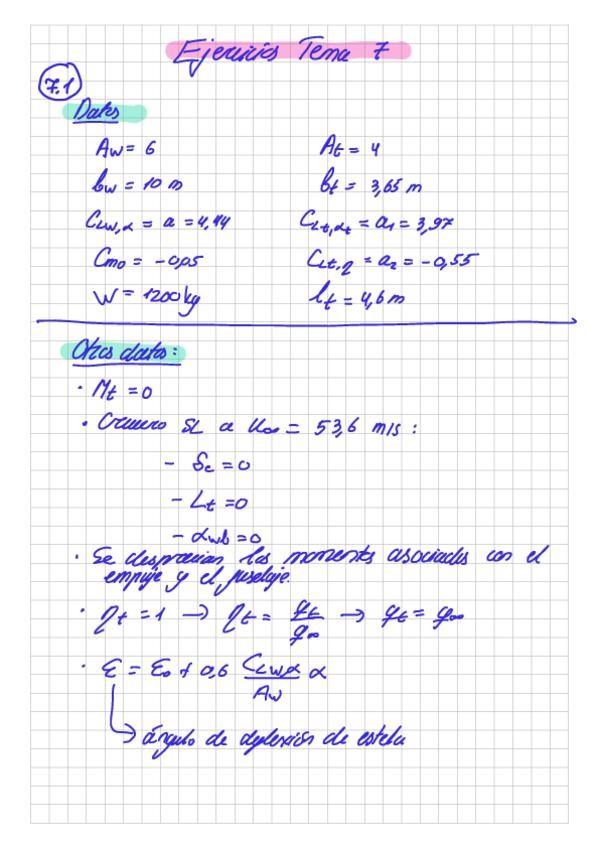 Ejercicios Tema 7
7.1
Datos
Aw = 6
At = 4
bw = 10 m
bt = 3,65 m
CLw,α = a = 4,44
CLt,αt = a1 = 3,97
Cmo = -0,05
CLt,η = a2 = -0,55
W = 1200 kg
lt = 4,6 m
Otros datos:
· Mt = 0
· Crucero SL a U∞ = 53,6 m/s :
- δe = 0
- Lt = 0
- αwb = 0
· Se desprecian los momentos asociados con el
empuje y el fuselaje.
· ηt = 1 → ηt = qt/q∞ → qt = q∞
· ε = ε0 + 0,6 CLwα/Aw α
↳ ángulo de deflexión de estela